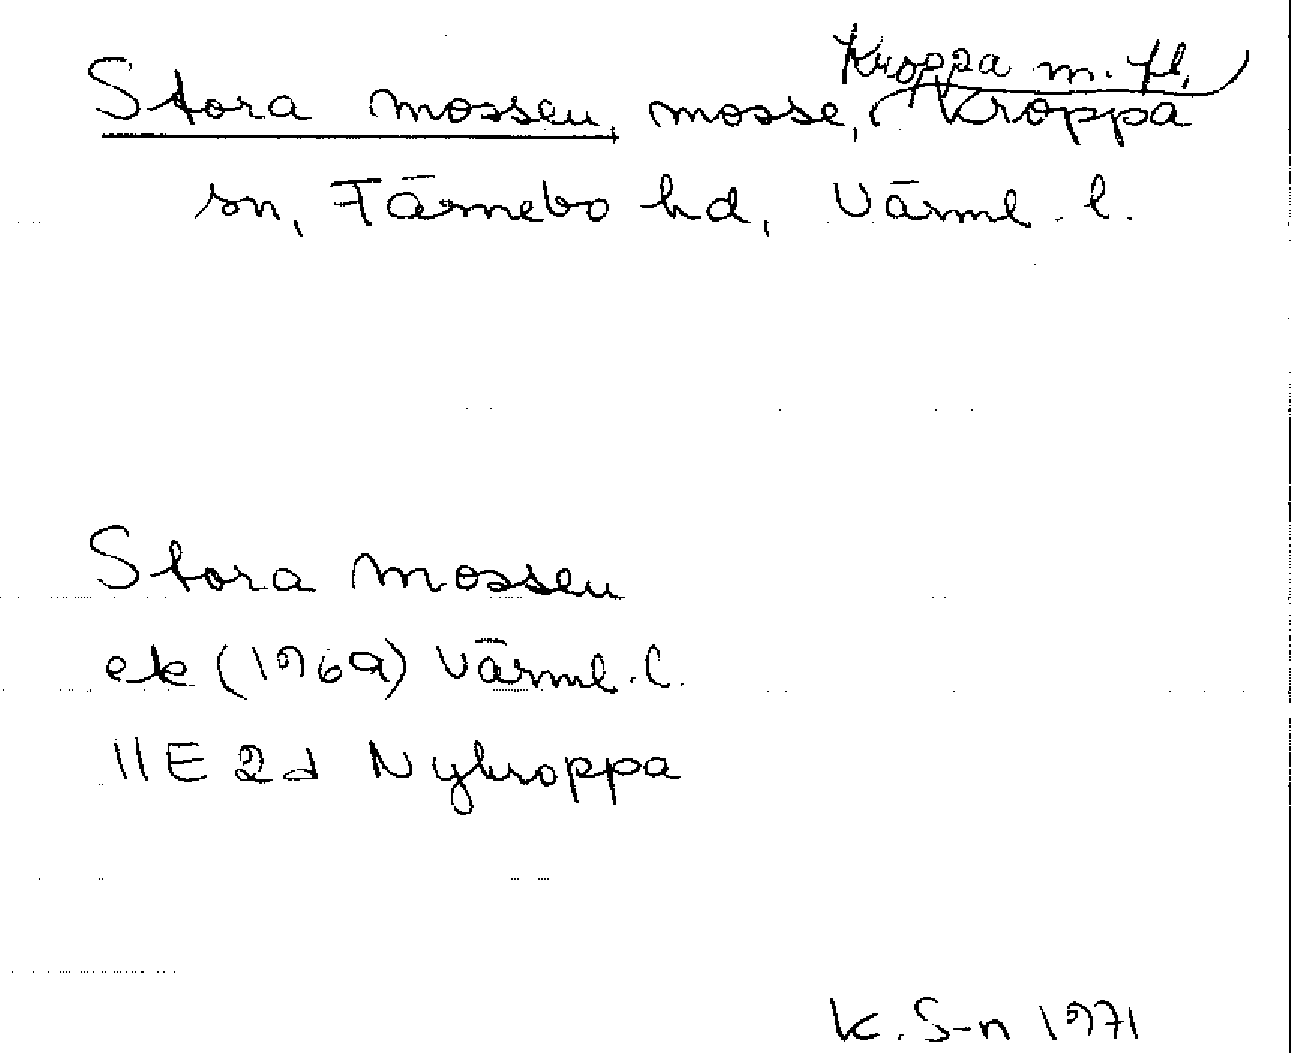 Kroppa m. fl.
Stora mossen, mosse, Kroppa
sn, Färnebo hd, Värml. l.
Stora mossen
ek (1969) Värml. l.
11E 2d Nykroppa
K. S-n 1971